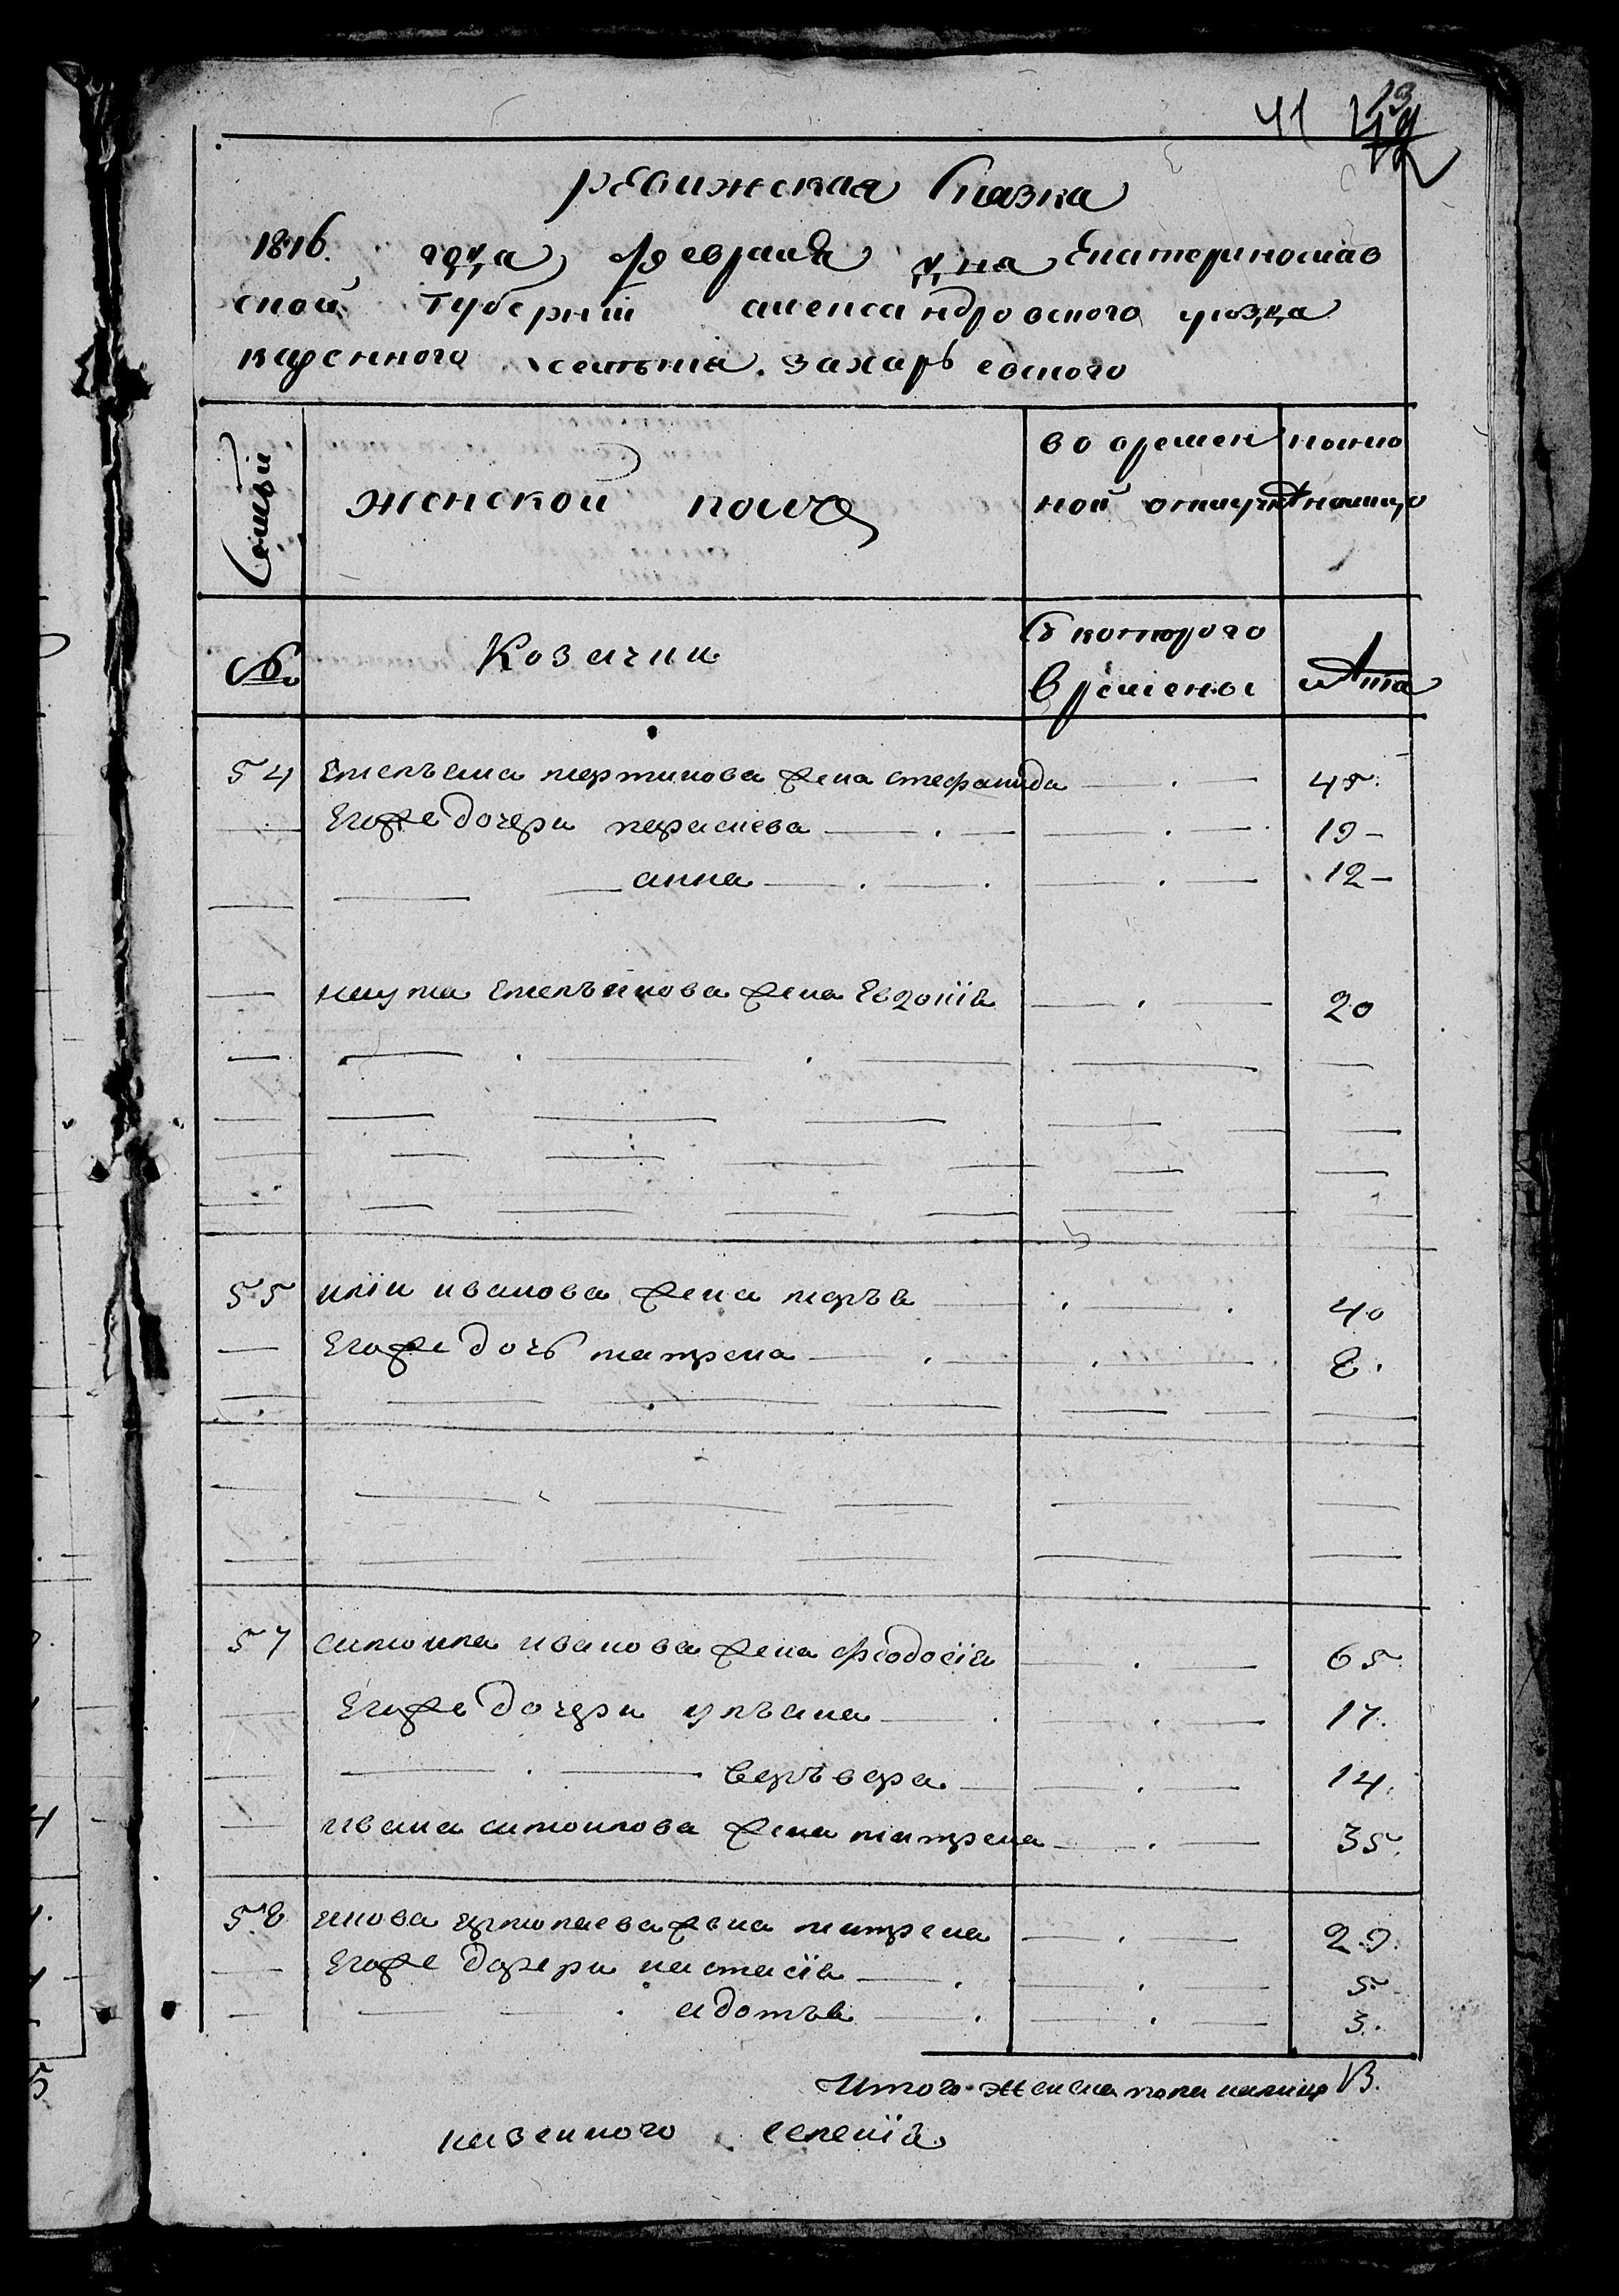 41 13
ревижская Сказка
1816. года, февраля дня Екатеринослав
ской Губерніи александровского уезда
казенного селенія. захарьевского
Семьи
женской полъ
во времен
ной отлучке
ныне
налицо
№
Козачки
Съ которого
времены
лѣта
54 Емельяна мартинова жена стефанида 45.
Егоже дочери параскева 19
анна 12
наума Емельянова жена Евдокія 20
55 иліи иванова жена марья 40
Егоже дочь матрена 8.
57 самоила иванова жена феодосія 65
Егоже дочери ульяна 17.
варьвара 14.
ивана самоилова жена матрена 35.
58 якова ярмолаева жена матрена 29.
Егоже дочери настасія 5
адотья 3.
Итого женска пола налицо 13.
казенного селенія